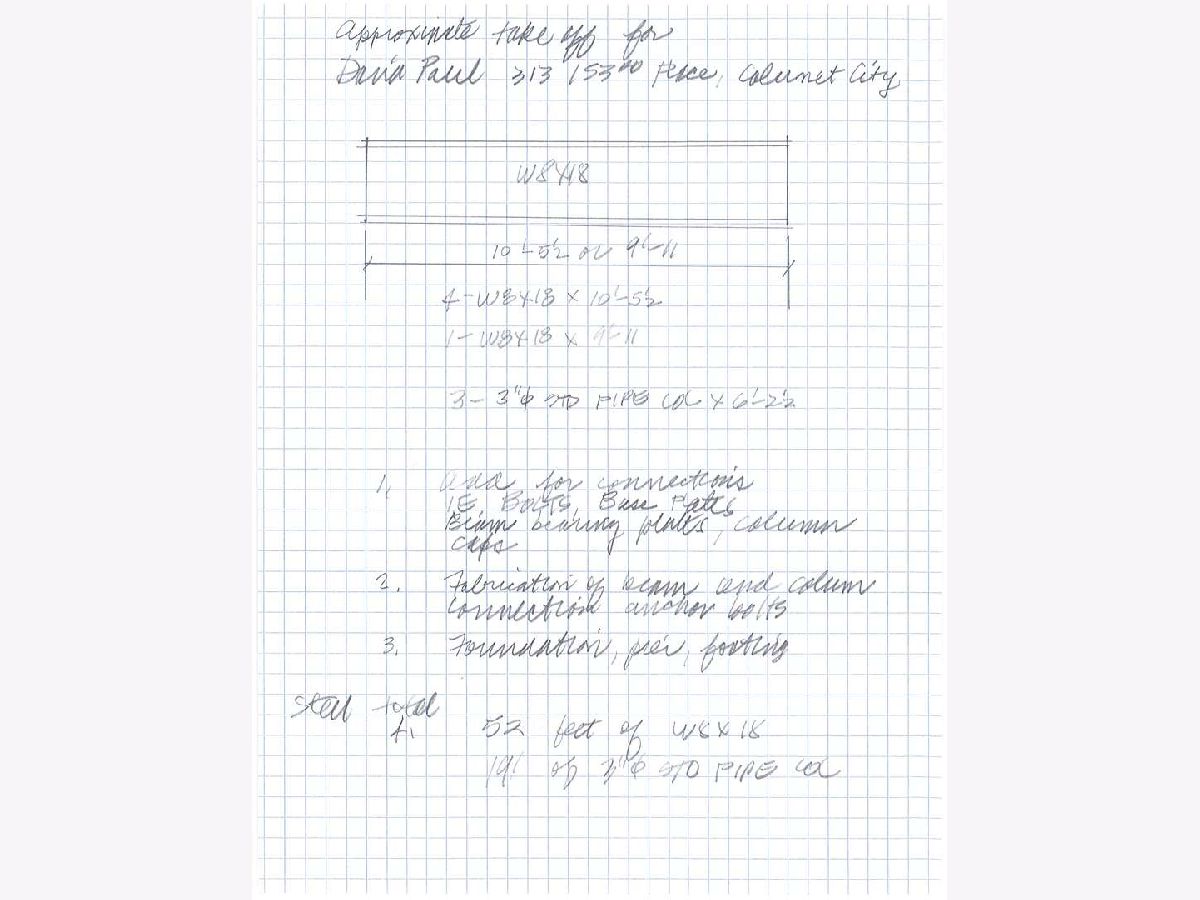 Approximate take off for
David Paul 313 153rd Place, Calumet City
W8X18
10'-5½ or 9'-11
4-W8X18 x 10'-5½
1-W8X18 x 9'-11
3- 3"ϕ STD PIPE COL X 6'-2½
1. add for connections
IE, BOLTS, Base Plates
Beam bearing plates, column
caps
2. Fabrication of beam and column
connection anchor bolts
3. Foundation, pier, footing
Steel total
52 feet of W8X18
19' of 3"ϕ STD PIPE COL